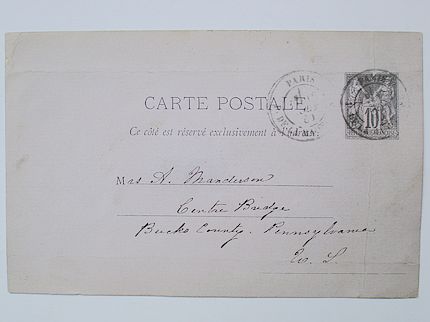 PARIS
PARIS
CARTE POSTALE
10
Ce côté est réservé exclusivement à l'adresse.
Mrs A. Manderson
Centre Bridge
Bucks County. Pennsylvania